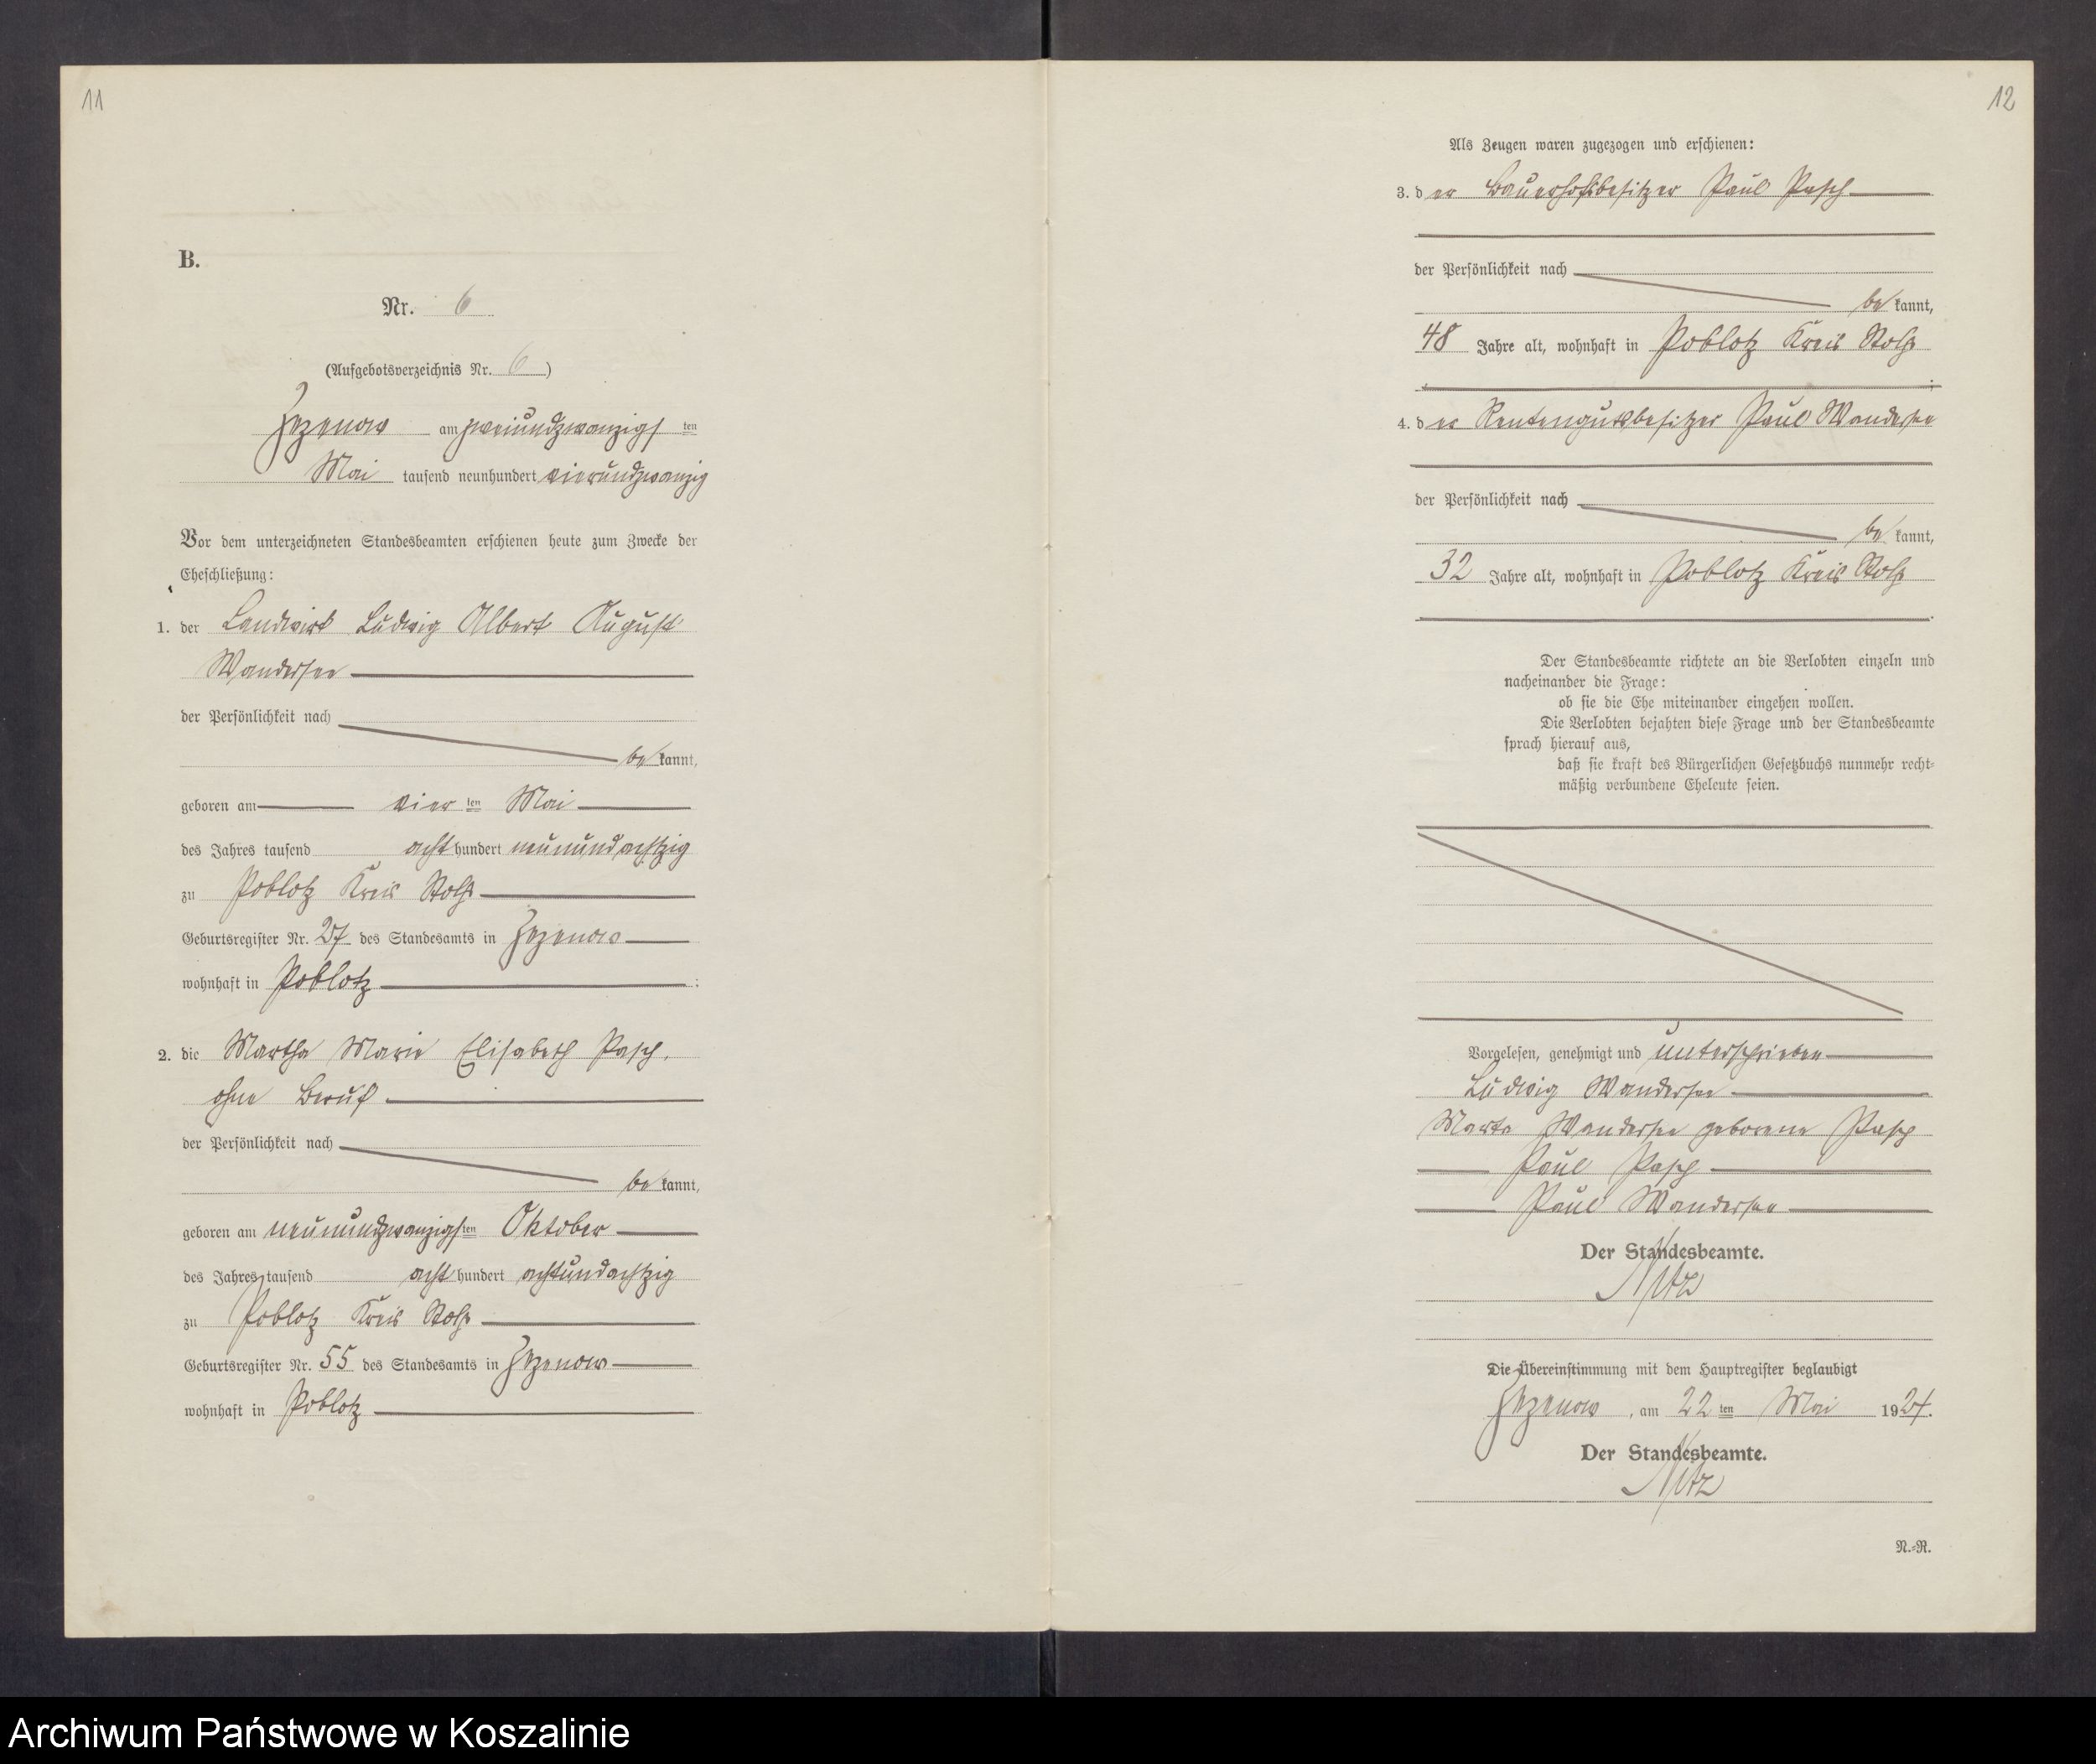 11
B.
Nr. 6
(Aufgebotsverzeichnis Nr. 6)
Zezenow am zweiundzwanzigsten
Mai tausend neunhundert vierundzwanzig
Vor dem unterzeichneten Standesbeamten erschienen heute zum Zwecke der
Eheschließung:
1. der Landwirt Ludwig Albert August
Wandersee
der Persönlichkeit nach
be kannt,
geboren am vier ten Mai
des Jahres tausend acht hundert neunundachtzig
zu Poblotz Kreis Stolp
Geburtsregister Nr. 27 des Standesamts in Zezenow
wohnhaft in Poblotz :
2. die Martha Marie Elisabeth Pasch,
ohne Beruf
der Persönlichkeit nach
be kannt,
geboren am neunundzwanzigsten Oktober
des Jahres tausend acht hundert achtundachtzig
zu Poblotz Kreis Stolp
Geburtsregister Nr. 55 des Standesamts in Zezenow
wohnhaft in Poblotz
12
Als Zeugen waren zugezogen und erschienen:
3. der Bauerhofsbesitzer Paul Pasch
der Persönlichkeit nach
be kannt,
48 Jahre alt, wohnhaft in Poblotz Kreis Stolp
;
4. der Rentengutsbesitzer Paul Wandersee
der Persönlichkeit nach
be kannt,
32 Jahre alt, wohnhaft in Poblotz Kreis Stolp
.
Der Standesbeamte richtete an die Verlobten einzeln und
nacheinander die Frage:
ob sie die Ehe miteinander eingehen wollen.
Die Verlobten bejahten diese Frage und der Standesbeamte
sprach hierauf aus,
daß sie kraft des Bürgerlichen Gesetzbuchs nunmehr recht-
mäßig verbundene Eheleute seien.
Vorgelesen, genehmigt und unterschrieben
Ludwig Wandersee
Marta Wandersee geborene Pasch
Paul Pasch
Paul Wandersee
Der Standesbeamte.
Die Übereinstimmung mit dem Hauptregister beglaubigt
Zezenow, am 22ten Mai 1924.
Der Standesbeamte.
N.-R.
Archiwum Państwowe w Koszalinie